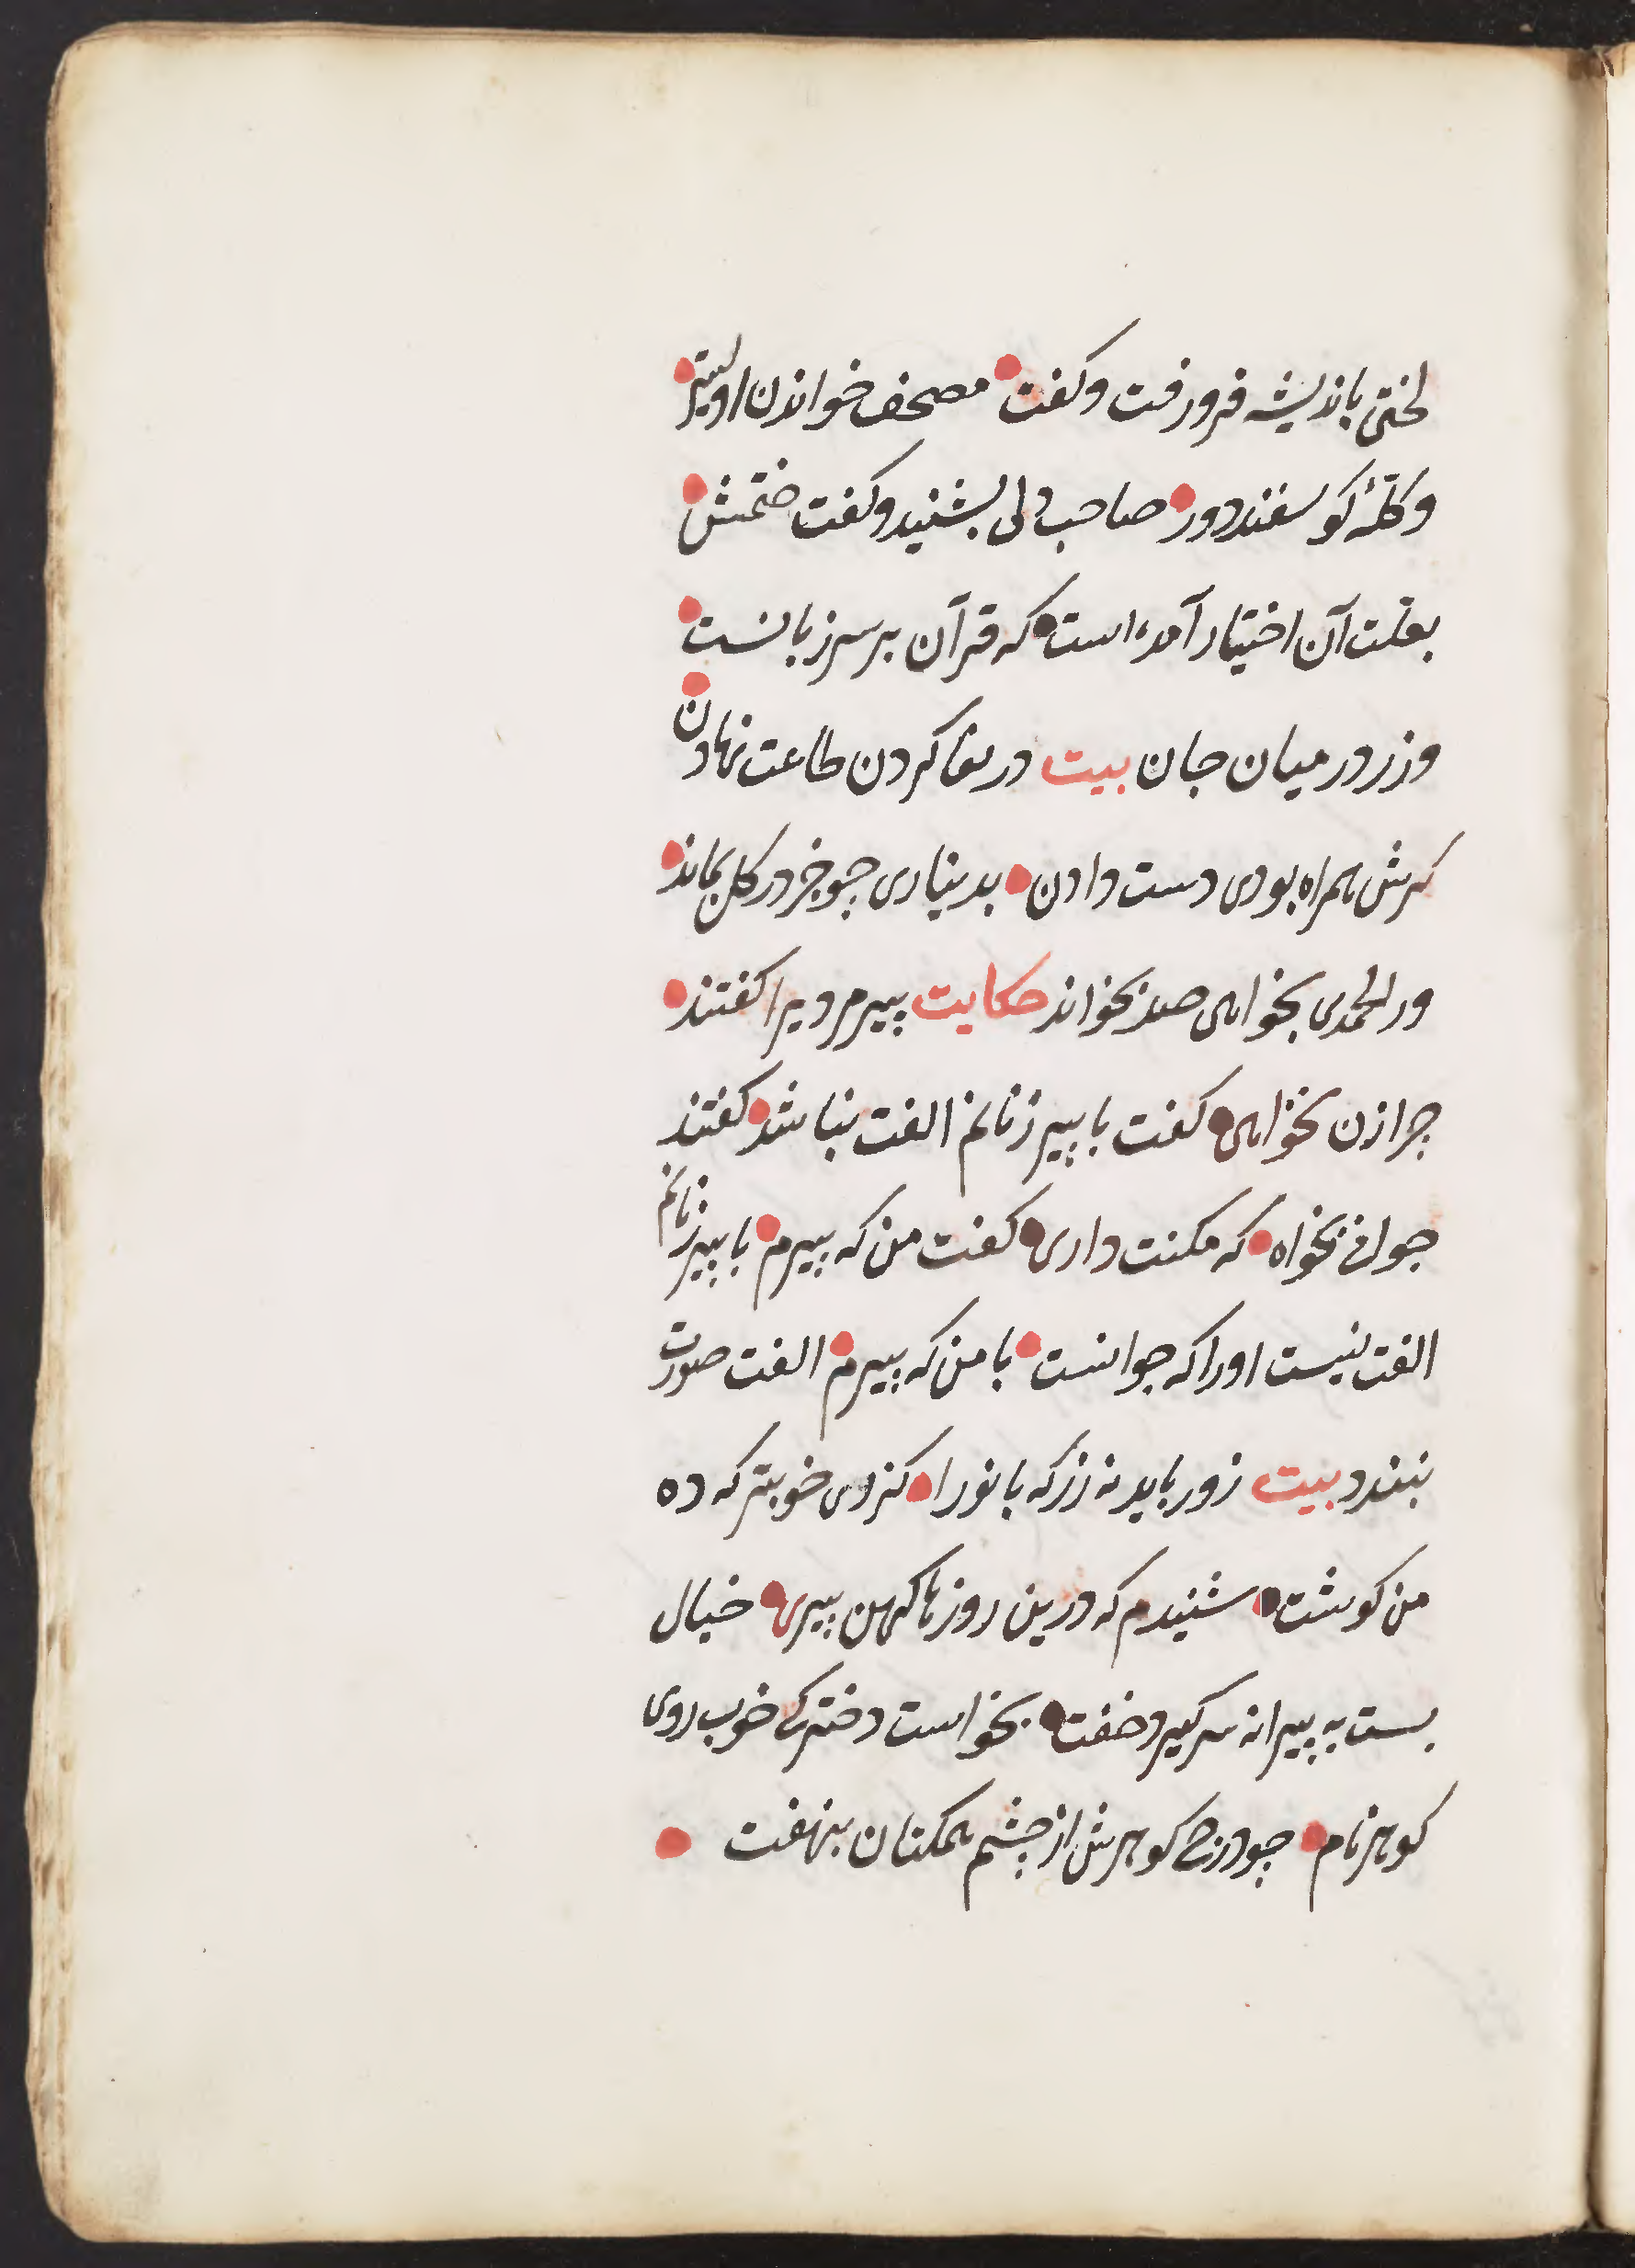 لختی باندیشه فرو رفت و کفت مصحف خواندن اولیتر
و کلّهٔ کوسفند دور صاحب دلی بشنید و کفت ختمش
بعلت آن اختیار آمده است که قرآن بر سر زبانست
و زر در میان جان بیت دریغا کردن طاعت نهادن
کرش همراه بودی دست دادن بدیناری چو خر در کل بماند
ور الحمدی بخواهی صد بخواند حکایت پیرمردیرا کفتند
چرا زن نخواهی کفت با پیر زنانم الفت نباشد کفتند
جوانی بخواه که مکنت داری کفت من که پیرم با پیرزنانم
الفت نیست او را که جوانست با من که پیرم الفت صورت
نبندد بیت زور باید نه زر که بانو را کزری خوبتر که ده
من کوشت شنیدم که درین روزها کهن پیری خیال
بست به پیرانه سر کیرد خفت بخواست دخترکی خوب روی
کوهر نام چو درج کوهرش از چشم همکنان بنهفت